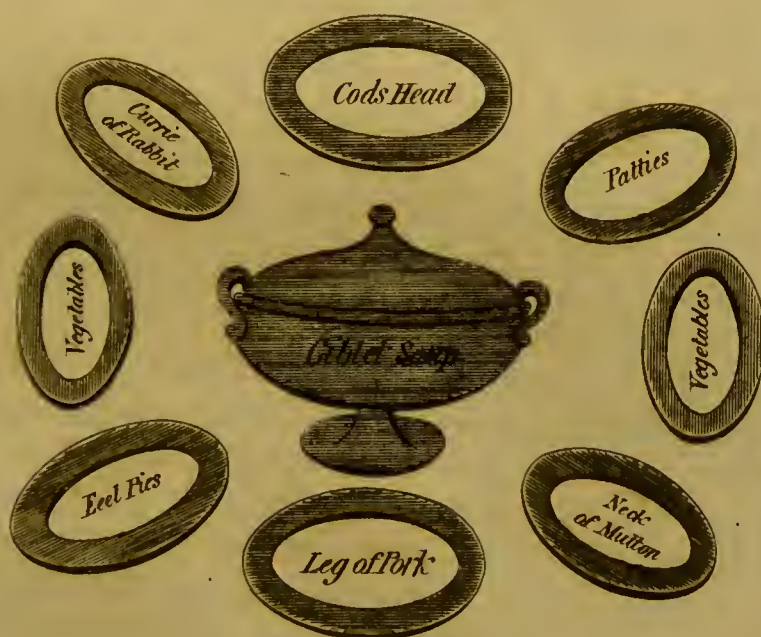 Cods Head
Currie
of Rabbit
Patties
Vegetables
Giblet Soup
Vegetables
Eeel Pies
Neck
of Mutton
Leg of Pork